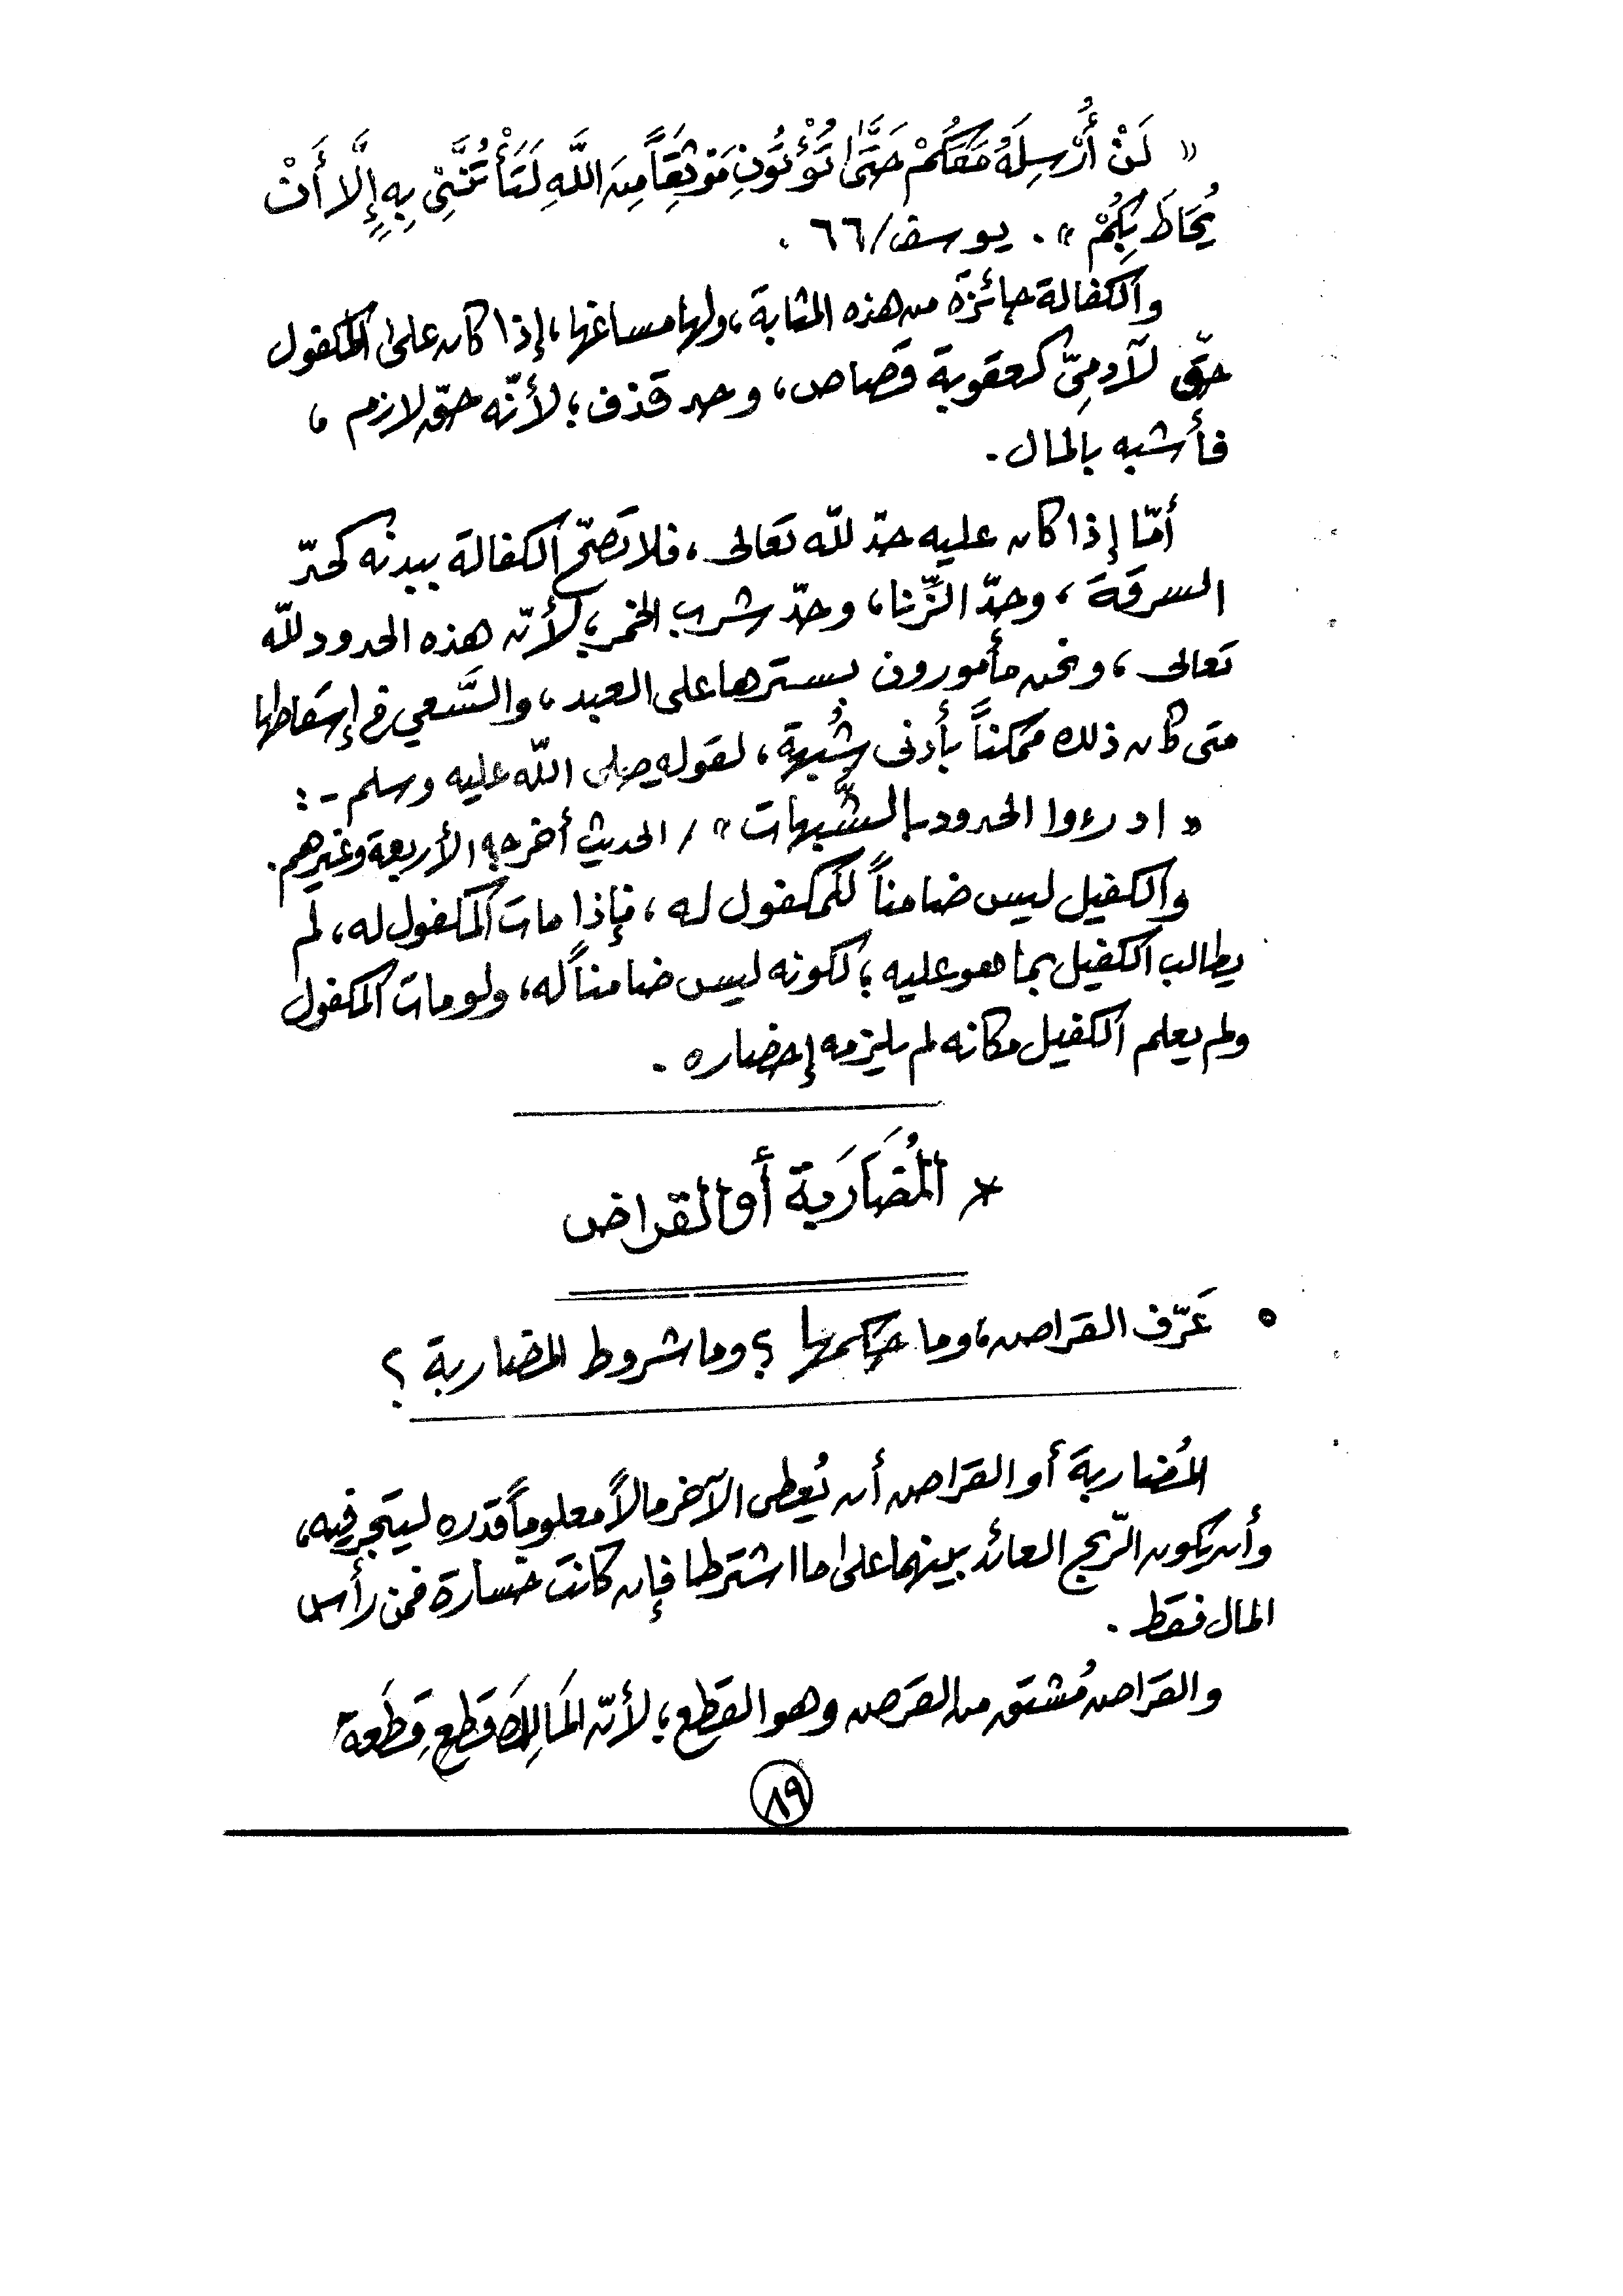 « لَنْ أُرْسِلَهُ مَعَكُمْ حَتَّىٰ تُؤْتُونِ مَوْثِقَاً مِنَ اللَّهِ لَتَأْتُنَّنِي بِهِ إِلَّا أَنْ
يُحَاطَ بِكُمْ » . يوسف/٦٦ .
والكفالة جائزة من هذه المثابة، ولها مساغها، إذا كان على المكفول
حقّ لآدميّ كعقوبة قصاص، وحد قذف؛ لأنّه حقّ لازم ،
فأشبه بالمال .
أمّا إذا كان عليه حدّ للّه تعالى ، فلا تصّح الكفالة ببدنه كحدّ
السرقة ، وحدّ الزِّنا، وحدّ شرب الخمر؛ لأنّ هذه الحدود للّه
تعالى ، ونحن مأمورون بسترها على العبد ، والسَّعي في إسقاطها
متى كان ذلك ممكناً بأدنى شُبهة ، لقوله صلى اللّه عليه وسلم - :
« ادرءوا الحدود بالشّبهات » / الحديث أخرجه الأربعة وغيرهم .
والكفيل ليس ضامناً للمكفول له ، فإذا مات المكفول له ، لم
يطالب الكفيل بما هو عليه ؛ لكونه ليس ضامناً له ، ولو مات المكفول
ولم يعلم الكفيل مكانه لم يلزمه إحضاره .
* المُضَارَبة أو القراض
• عَرّف القراض، وما حكمها ؟ وما شروط المضاربة ؟
المُضاربة أو القراض أن يُعطى الآخر مالاً معلوماً قدره ليتجر فيه،
وأن يكون الرّبح العائد بينهما على ما اشترطا فإن كانت خسارة فمن رأس
المال فقط .
والقراض مُشتق من القرض وهو القطع ؛ لأنّ المَالِك قطع قِطَعة
٨٩